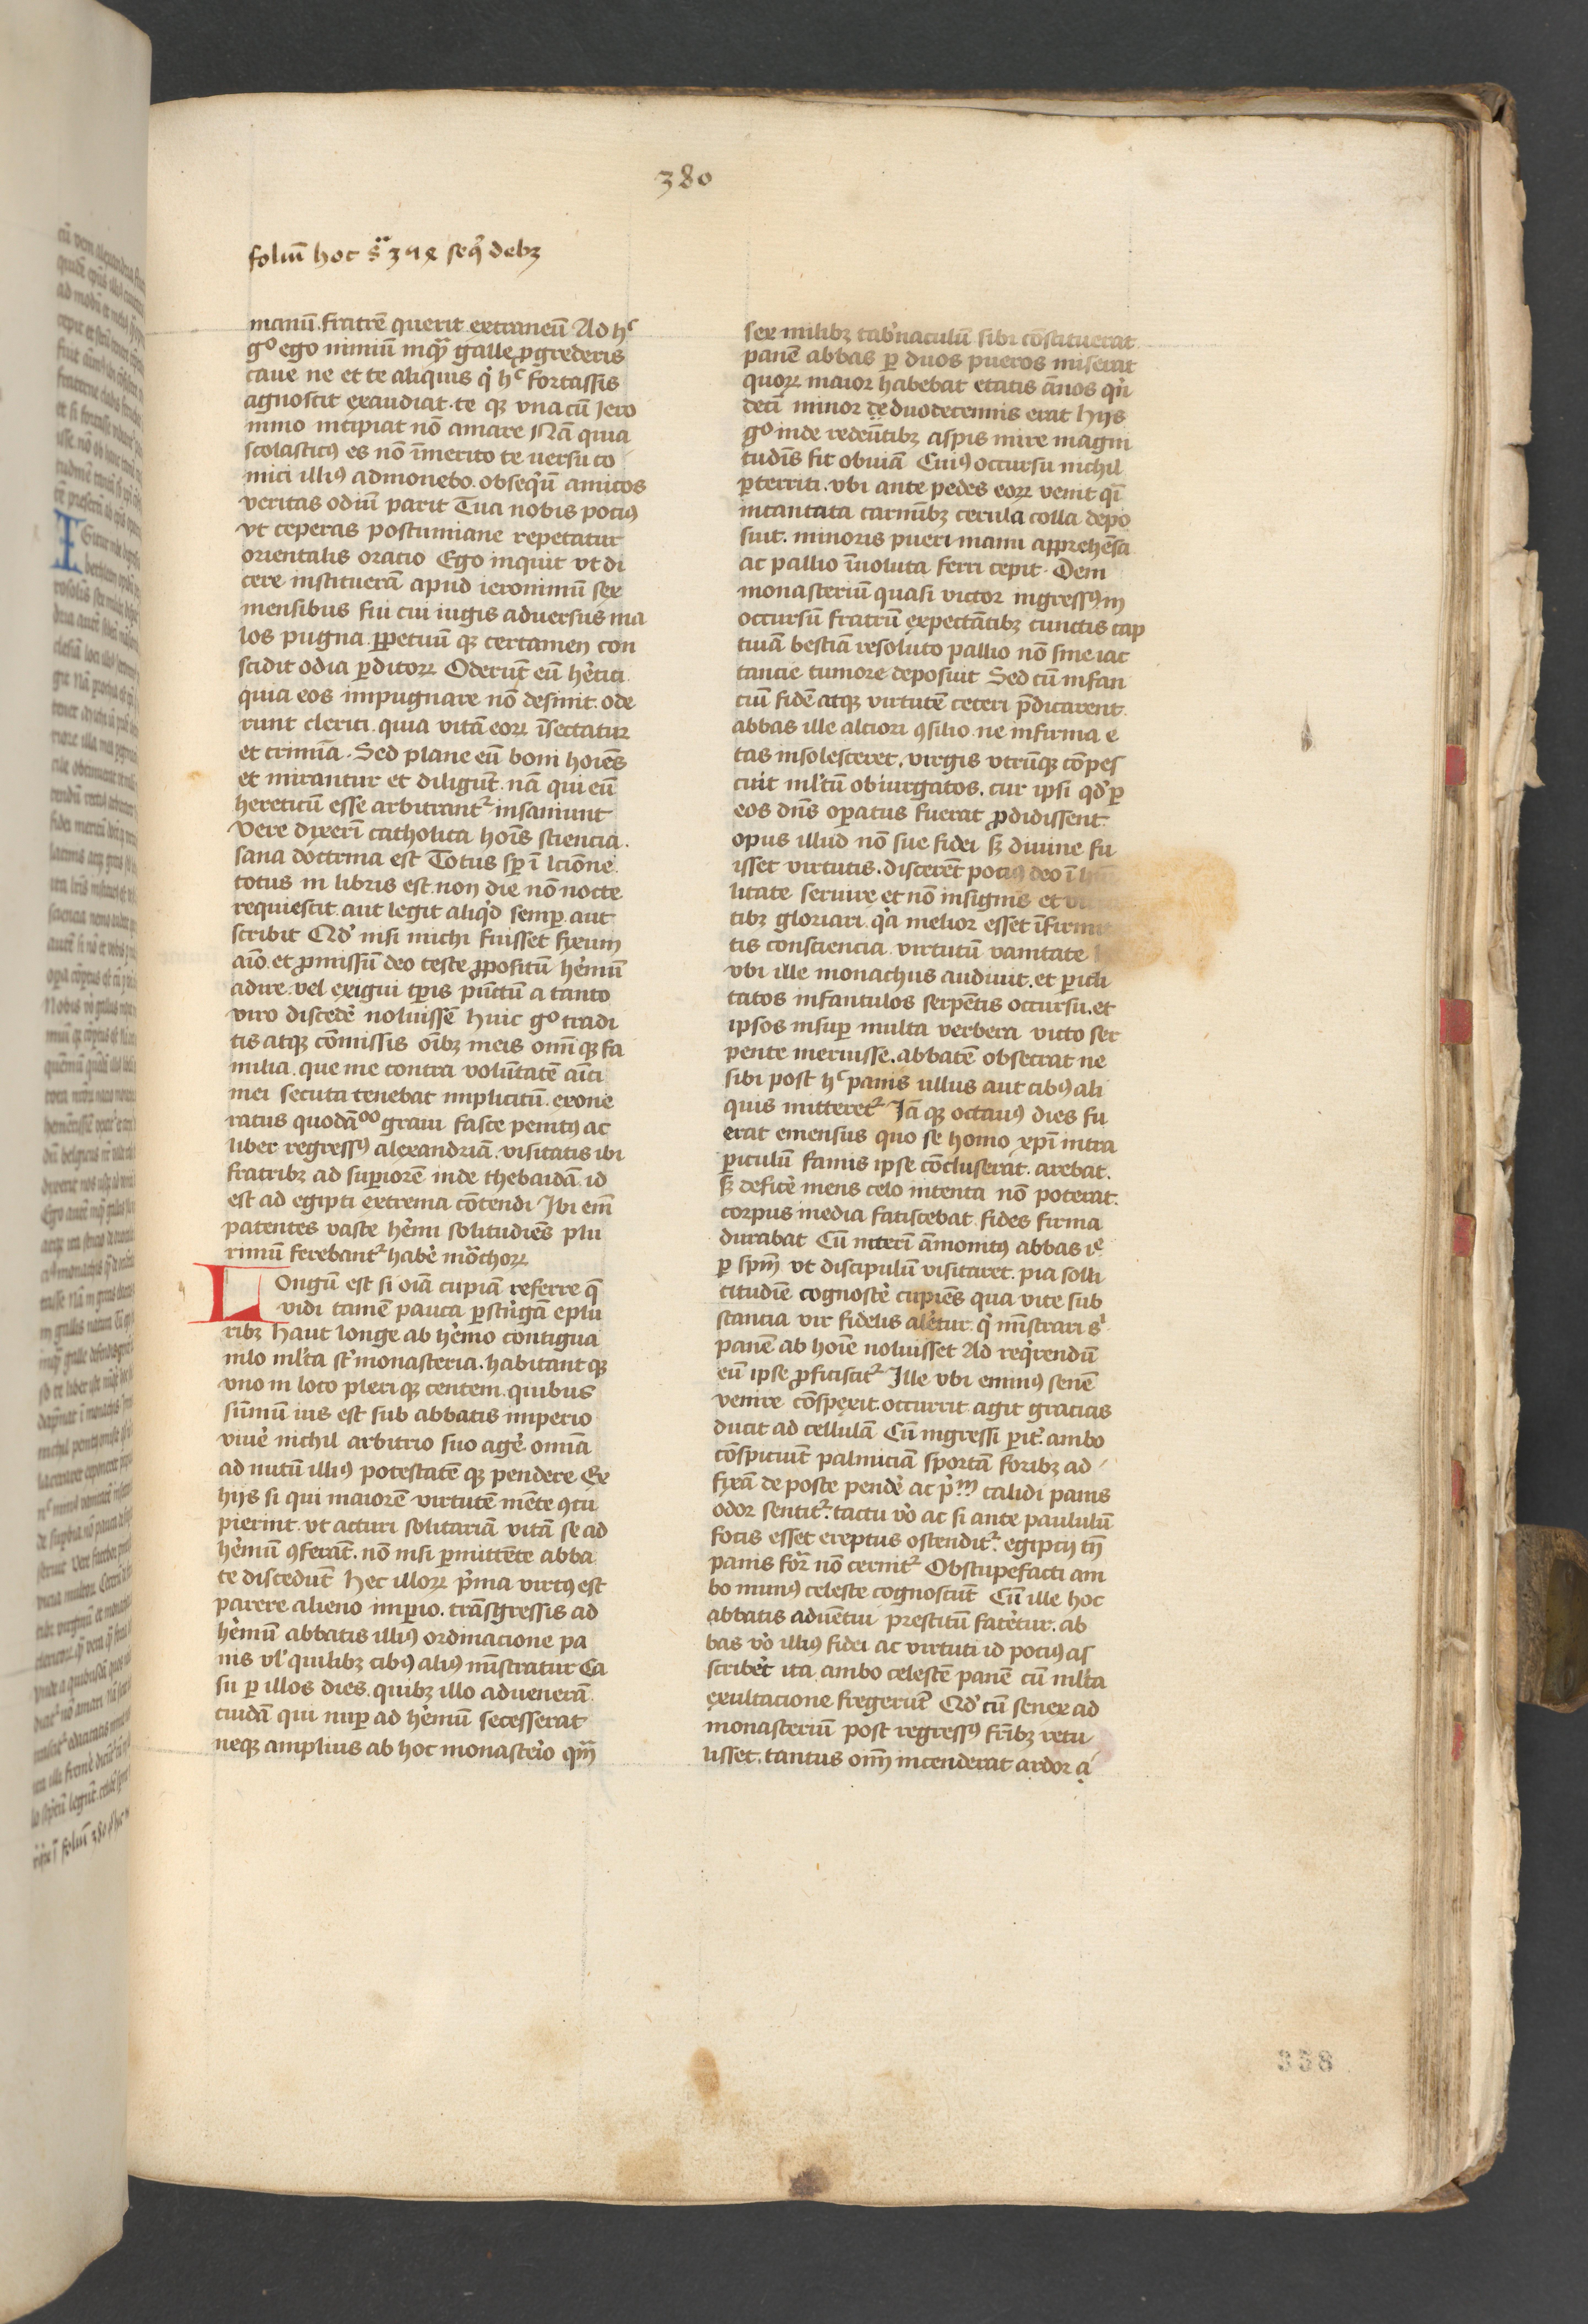 380
foliū hoc
manū. fratrē querit extraneū Ad hͨ
gͦ ego nimiū inqͣm galle ꝓgrederis
caue ne et te aliquis qͥ hͨ fortassis
agnoscit exaudiat. te qꝫ vna cū Jero
nimo incipiat nō amare Nā quia
scolasticꝰ es nō īmerito te uersu co
mici illiꝰ admonebo. obseqͥū amicos
veritas odiū parit Tua nobis pociꝰ
vt ceperas postumiane repetatur
orientalis oratio Ego inquit vt di
cere institueram̄ apud ieronimū sex
mensibus fui cui iugis aduersus ma
los pugna. ꝑpetuū qꝫ certamen con
scidit odia ꝑditoꝝ Oderūt eū hētici
quia eos impugnare nō desinit. ode
runt clerici. quia vitā eoꝝ īsectatur
et crimīa. Sed plane eū boni hoīes
et mirantur et diligūt. nā qui eū
hereticū esse arbitrant᷑ insaniunt
Vere dixerī catholica hoīs sciencia.
sana doctrina est Totus sꝑ ī lcīone
totus in libris est. non die nō nocte
requiescit. aut legit aliqͥd semꝑ. aut
scribit Qd̕ nisi michi fuisset fixum
aīo. et ꝓmissū deo teste ꝓpositū hemū
adire. vel exigui tꝑis pūctū a tanto
viro discede̕ noluissē Huic gͦ tradi
tis atqꝫ cōmissis oībꝫ meis omī qꝫ fa
milia. que me contra volūtatē aīci
mei secuta tenebat implicitū. exone
ratus quodāͦͦ graui fasce penitꝰ ac
liber regressꝰ alexandriā. visitatis ibi
fratribꝫ ad suꝑiorē inde thebaidā. id
est ad egipti extrema cōtendi Ibi em̄
patentes vaste he̕mi solitudiēs plu
rimū ferebant᷑ habe̕ mōchoꝝ
Longū est si oīa cupiā referre q̄
vidi tamē pauca ꝑstrīgā e plu
ribꝫ Haut longe ab he̕mo contigua
nilo ml̕ta st̕ monasteria. habitant qꝫ
vno in loco pleri qꝫ centem. quibus
sūmū ius est sub abbatis imperio
viue̕ nichil arbitrio suo age̕. omīa
ad nutū illiꝰ potestatē qꝫ pendere Ex
hijs si qui maiorē virtutē mēte ꝯcu
pierint. vt acturi solitariā vitā se ad
he̕mū ꝯferāt. nō nisi ꝑmittēte abba
te discedūt Hec illoꝝ pͥma virtꝰ est
parere alieno imꝑio. trāsgressis ad
he̕mū abbatis illiꝰ ordinacione pa
nis vl̕ quilibꝫ cibꝰ aliꝰ mīstratur Ca
su ꝑ illos dies. quibꝫ illo aduenerā
cuidā qui nuꝑ ad he̕mū secesserat
neqꝫ amplius ab hoc monaste̕io qͣm
sex milibꝫ tab̕naculū sibi cōstituerat
panē abbas ꝑ duos pueros miserat
quoꝝ maior habebat etatis ānos qͥn
decī minor de duodecennis erat Hijs
gͦ inde redeūtibꝫ aspis mire magni
tudīs fit obuiā Cuiꝰ occursu nichil
ꝑterriti. vbi ante pedes eoꝝ venit qͣi
incantata carmībꝫ cerula colla depo
suit. minoris pueri manu apprehēsa
ac pallio īuoluta ferri cepit. Dem
monasteriū quasi victor ingressꝰ in
occursū fratrū expectātibꝫ cunctis cap
tiuā bestiā resoluto pallio nō sine iac
tancie tumore deposuit Sed cū infan
ciū fidē atqꝫ virtutē ceteri p̄dicarent
abbas ille alciori ꝯsilio. ne infirma e
tas insolesceret. virgis vtrūqꝫ cōpes
cuit ml̕tū obiurgatos. cur ipsi qd̕ ꝑ
eos dn̄s oꝑatus fuerat ꝓdidissent.
opus illud nō sue fidei sꝫ diuine fu
isset virtutis. discerēt pociꝰ deo ī
litate seruire et nō insignis et
tibꝫ gloriari. qͥa melior esset
tis consciencia virtutū vanitate
vbi ille monachus audiuit. et ꝑicli
tatos infantulos serpētis occursu. et
ipsos insuꝑ multa verbera victo ser
pente meruisse. abbatē obsecrat ne
sibi post hͨ panis ullus aut cibꝰ ali
quis mitteret᷑ Jā qꝫ octauꝰ dies fu
erat emensus quo se homo xp̄i intra
ꝑiculū famis ipse cōcluserat. arebat.
sꝫ defice̕ mens celo intenta nō poterat.
corpus inedia fatiscebat fides firma
durabat Cū interī āmonitꝰ abbas
ꝑ sp̄m vt discipulū visitaret. pia solli
citudiē cognosce̕ cupiēs qua vite sub
stancia vir fidelis ale̕tur. qͥ mīstrari sͥ
panē ab hoīe noluisset Ad reqͥrendū
eū ipse ꝓficiscit᷑ Ille vbi eminꝰ senē
venire cōspexit. occurrit agit gracias
ducit ad cellulā Cū ingressi ꝑit᷑ ambo
cōspiciūt palmiciā sportā foribꝫ ad
fixā de poste pende̕ ac pͥm calidi panis
odor sentit᷑. tactu vo̕ ac si ante paululū
focis esset ereptus ostendit᷑. egipcij tn̄
panis for̄ nō cernit᷑ Obstupefacti am
bo munꝰ celeste cognoscūt Cū ille hoc
abbatis aduētui prestitū fate̕tur. ab
bas vo̕ illiꝰ fidei ac virtuti id pociꝰ as
scribe̕t ita ambo celestē panē cū ml̕ta
exultacione fregerūt Qd̕ cū senex ad
monasteriū post regressꝰ fr̄ibꝫ retu
lisset. tantus omm̄ incenderat ardor a
338